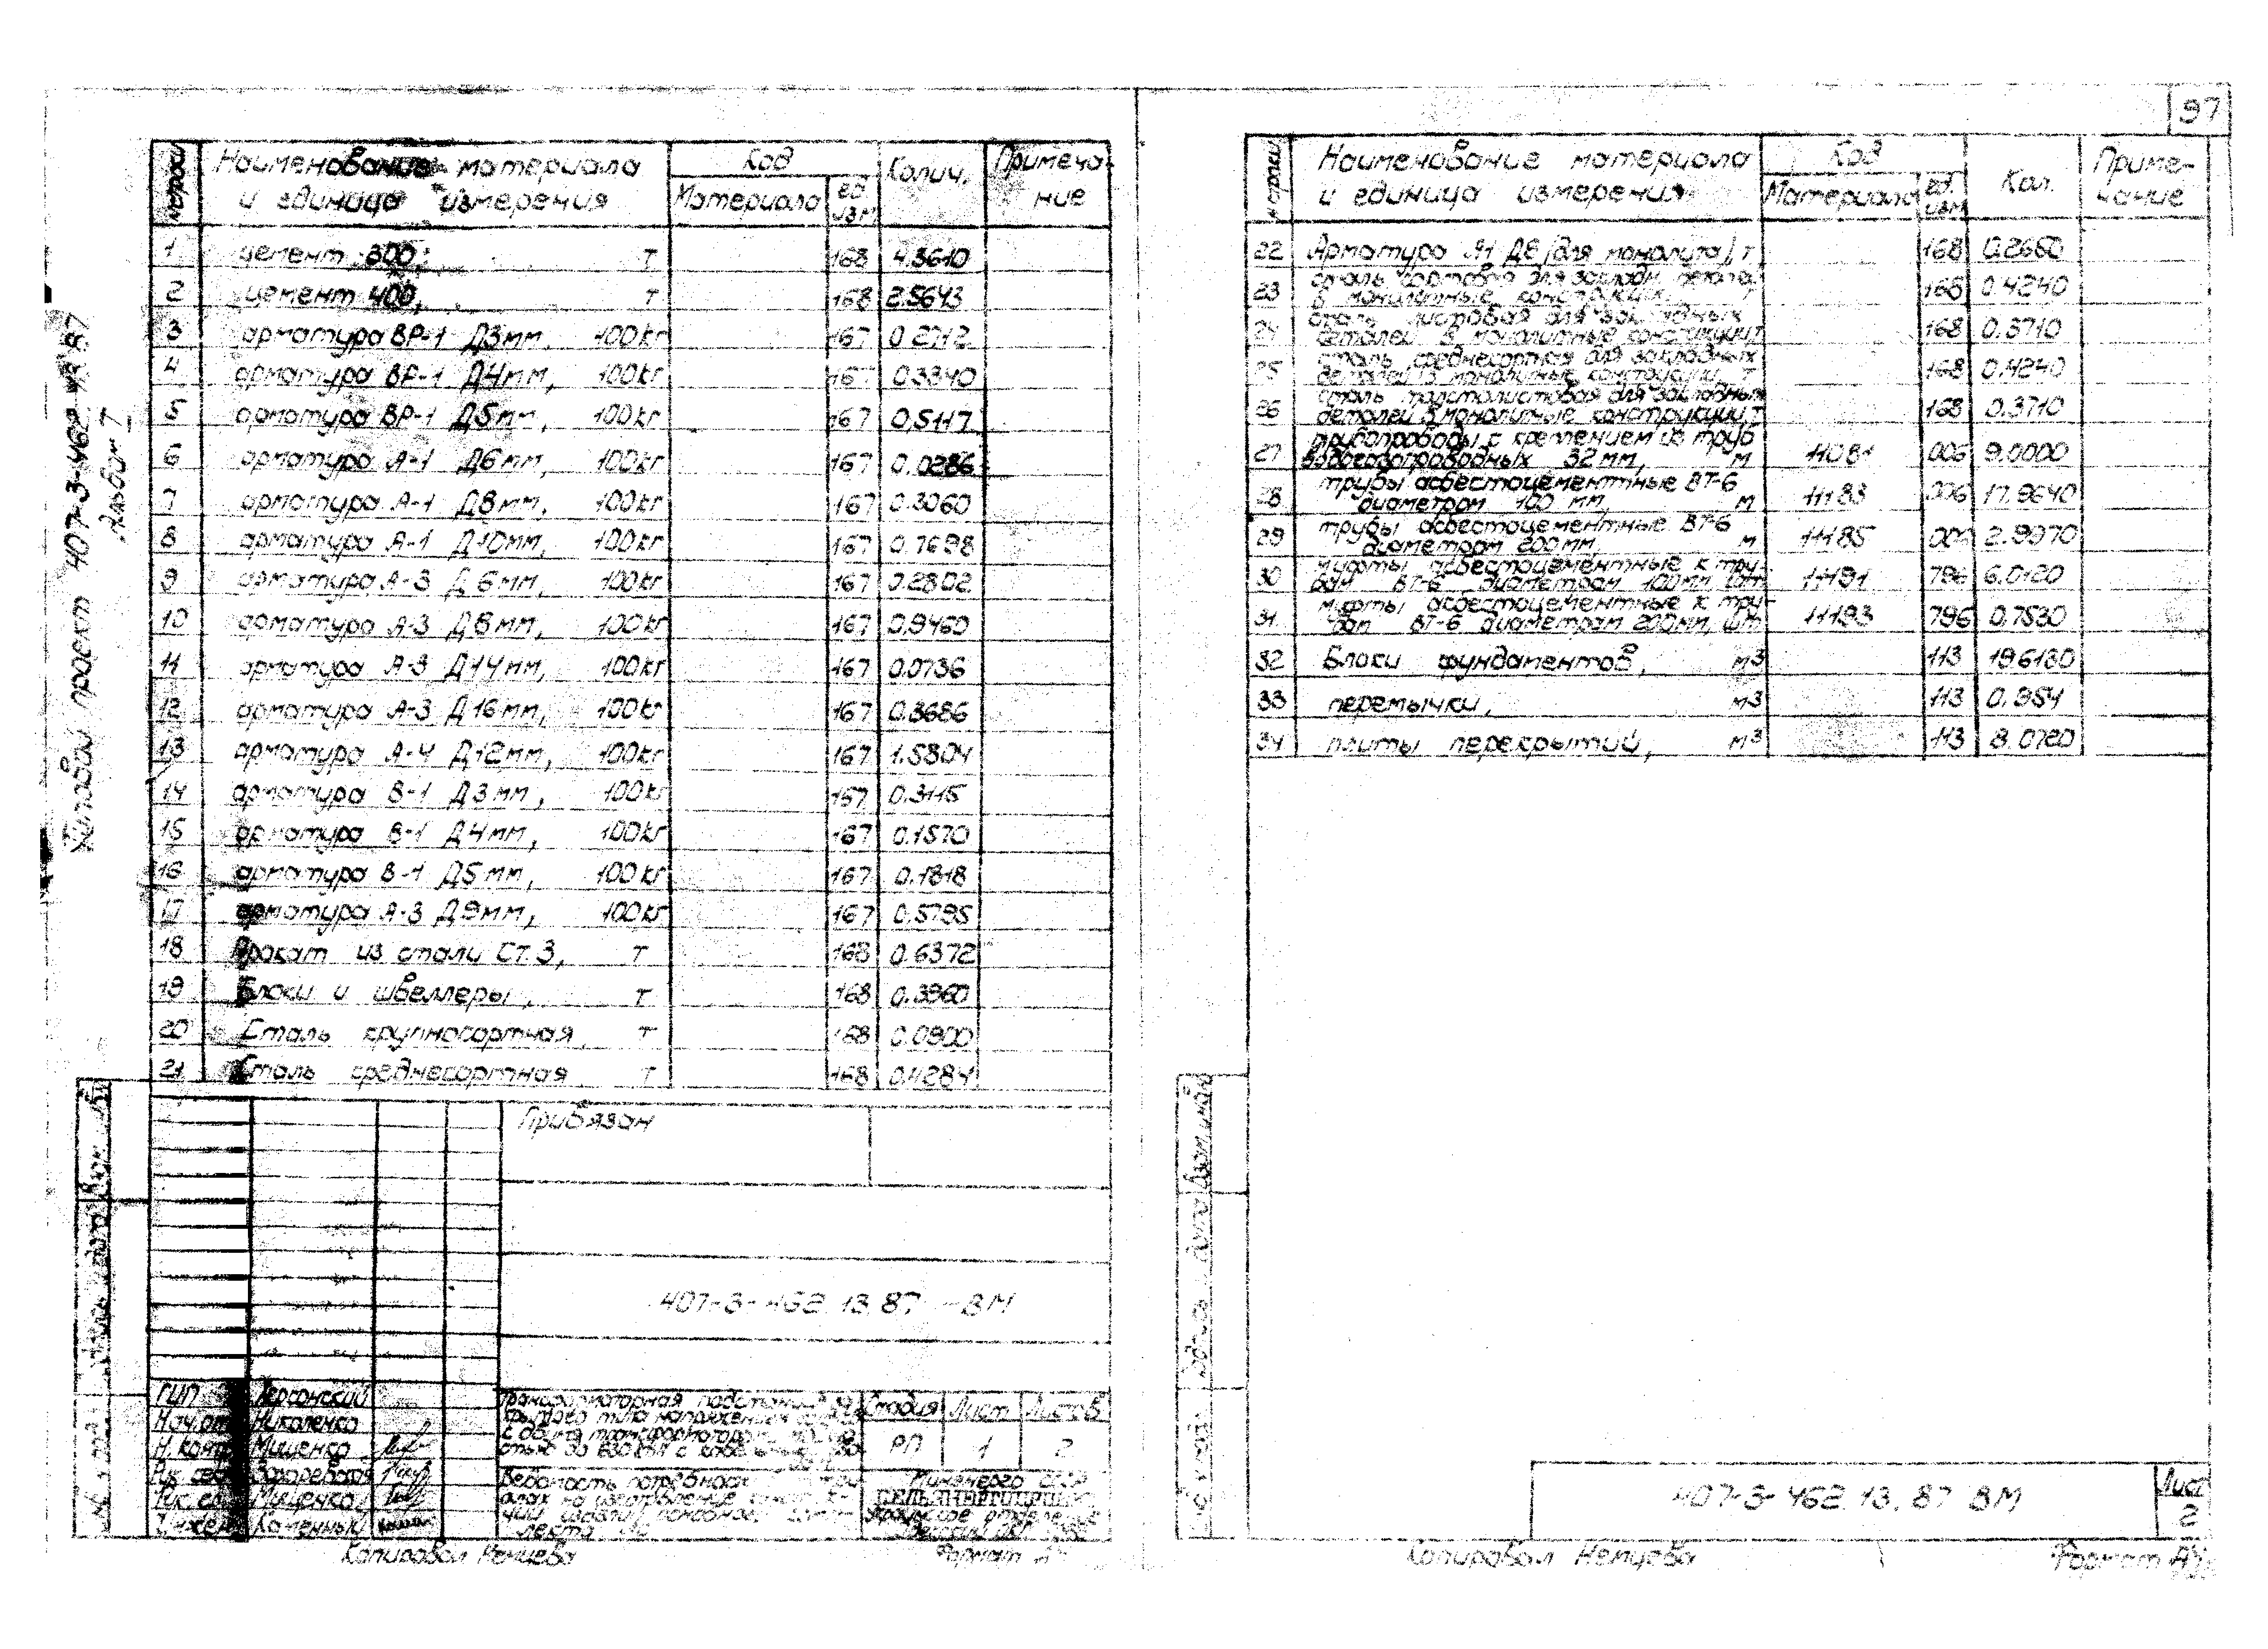 97
Типовой проект 407-3-462.13.87
Альбом 7
N строки
Наименование материала
и единица измерения
Код
Материала
ед. изм
Колич.
Примеча-
ние
1 цемент 300, т 168 4.3610
2 цемент 400, т 168 2.5643
3 арматура ВР-1 Д3мм, 100кг 167 0.2712
4 арматура ВР-1 Д4мм, 100кг 167 0.3340
5 арматура ВР-1 Д5мм, 100кг 167 0,5117
6 арматура А-1 Д6мм, 100кг 167 0.0286
7 арматура А-1 Д8мм, 100кг 167 0.3060
8 арматура А-1 Д10мм, 100кг 167 0.7698
9 арматура А-3 Д6мм, 100кг 167 0.2802
10 арматура А-3 Д8мм, 100кг 167 0.9460
11 арматура А-3 Д14мм, 100кг 167 0.0736
12 арматура А-3 Д16мм, 100кг 167 0.3686
13 арматура А-4 Д12мм, 100кг 167 1.5804
14 арматура В-1 Д3мм, 100кг 167 0.3115
15 арматура В-1 Д4мм, 100кг 167 0.1570
16 арматура В-1 Д5мм, 100кг 167 0.1818
17 арматура А-3 Д9мм, 100кг 167 0.5795
18 Прокат из стали Ст.3, т 168 0.6372
19 Блоки и швеллеры, т 168 0.3960
20 Сталь крупносортная т 168 0.0900
21 Сталь среднесортная т 168 0.4284
Привязан
407-3-462.13.87 -ВМ
ГИП Херсонский
Нач.отд Николенко
Н.контр Мищенко
Рук.
Рук. Мищенко
Трансформаторная подстанция
с одним трансформатором
Стадия Лист Листов
РП 1 2
Минэнерго СССР
СЕЛЬЭНЕРГОПРОЕКТ
Копировал Немцева
Формат А4
N строки
Наименование материала
и единица измерения
Код
Материала
ед. изм
Кол.
Приме-
чание
22 Арматура А1 Д8 (для монолита) т 168 0.2650
23 сталь сортовая для закладн. деталей
в монолитные конструкции т 168 0.4240
24 сталь листовая для закладных
деталей в монолитные конструкции,т 168 0.3710
25 сталь среднесортная для закладных
деталей в монолитные конструкции, т 168 0.4240
26 сталь толстолистовая для закладных
деталей в монолитные конструкции,т 168 0.3710
27 трубопроводы с креплением из труб
водогазопроводных 32мм, м 11081 006 9.0000
28 трубы асбестоцементные ВТ-6
диаметром 100 мм, м 11183 006 17.9640
29 трубы асбестоцементные ВТ-6
диаметром 200мм, м 11185 006 2.9970
30 муфты асбестоцементные к тру-
бам ВТ-6 диаметром 100мм, шт 11191 796 6.0120
31 муфты асбестоцементные к тру-
бам ВТ-6 диаметрам 200мм, шт 11193 796 0.7530
32 Блоки фундаментов, м3 113 19.6130
33 перемычки, м3 113 0.954
34 плиты перекрытий, м3 113 8.0720
407-3-462.13.87 ВМ
Лист
2
Копировал Немцева
Формат А4